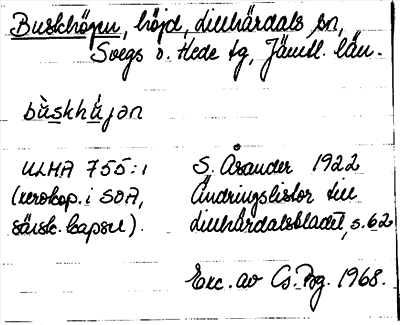 Buskhögen, höjd, Lillhärdals sn,
Svegs o. Hede tg, Jämtl. län.
bùskhǜjən
ULMA 755:1 S. Åsander 1922
(xerokop. i SOA, Ändringslistor till
särsk. kapsel). Lillhärdalsbladet, s. 62
Exc. av Cs. Bg. 1968.